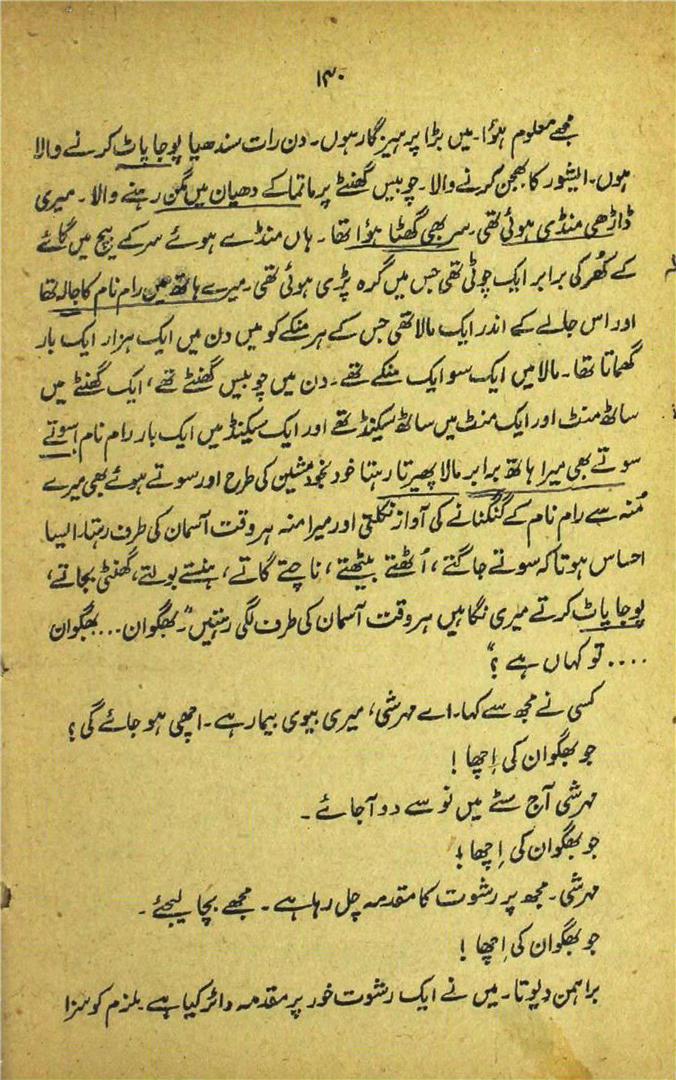 ۱۳۰
مجھے معلوم ہؤا۔ میں بڑا پرہیزگار ہوں۔ دن رات سندھیا پوجا پاٹ کرنے والا
ہوں۔ ایشور کا بھجن کرنے والا۔ چوبیس گھنٹے پرماتما کے دھیان میں مگن رہنے والا۔ میری
ڈاڑھی منڈی ہوئی تھی۔ سر بھی گھٹا ہؤا تھا۔ ہاں منڈے ہوئے سر کے بیچ میں گائے
کے کُھر کی برابر ایک چوٹی تھی جس میں گرہ پڑی ہوئی تھی۔ میرے ہاتھ میں رام نام کا جالہ تھا
اور اس جالے کے اندر ایک مالا تھی جس کے ہر منکے کو میں دن میں ایک ہزار ایک بار
گھماتا تھا۔ مالا میں ایک سو ایک منکے تھے۔ دن میں چوبیس گھنٹے تھے، ایک گھنٹے میں
ساٹھ منٹ اور ایک منٹ میں ساٹھ سیکنڈ تھے اور ایک سیکنڈ میں ایک بار رام نام! سوتے
سوتے بھی میرا ہاتھ برابر مالا پھیرتا رہتا خود بخود مشین کی طرح اور سوتے ہوئے بھی میرے
مُنہ سے رام نام کے گنگنانے کی آواز نکلتی اور میرا منہ ہر وقت آسمان کی طرف رہتا۔ ایسا
احساس ہوتا کہ سوتے جاگتے، اُٹھتے بیٹھتے، ناچتے گاتے، ہنستے بولتے، گھنٹی بجاتے،
پوجا پاٹ کرتے میری نگاہیں ہر وقت آسمان کی طرف لگی رہتیں۔ "بھگوان... بھگوان
.... تو کہاں ہے؟"
کسی نے مجھ سے کہا۔ اے مہرشی، میری بیوی بیمار ہے۔ اچھی ہو جائے گی؟
جو بھگوان کی اِچھا!
مہرشی آج سٹے میں نو سے دو آجائے۔
جو بھگوان کی اِچھا!
مہرشی۔ مجھ پر رشوت کا مقدمہ چل رہا ہے۔ مجھے بچا لیجئے۔
جو بھگوان کی اِچھا!
براہمن دیوتا۔ میں نے ایک رشوت خور پر مقدمہ دائر کیا ہے۔ ملزم کو سزا